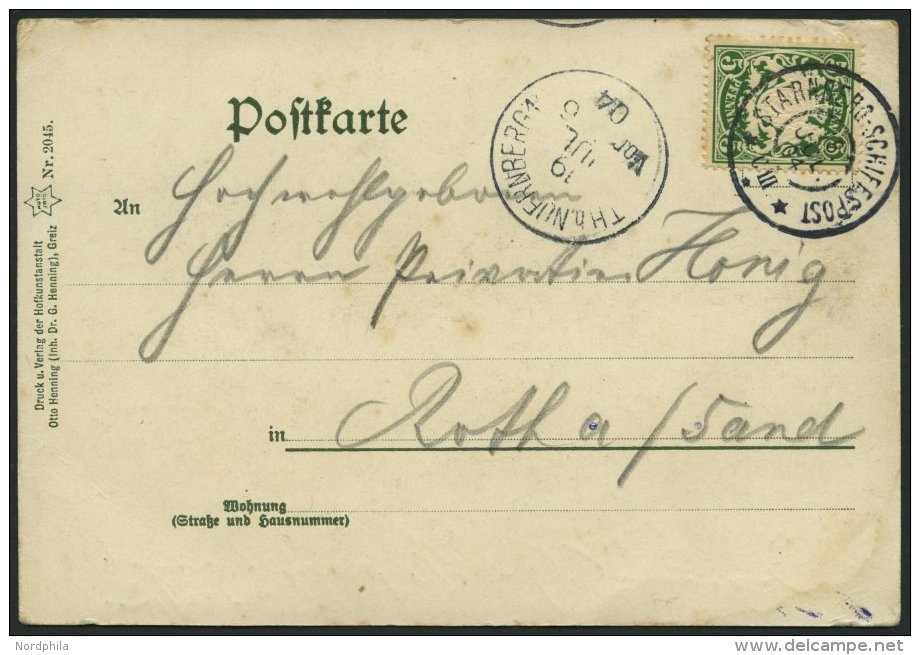 Postkarte
An
Hochwohlgeboren
Herrn Privatier Honig
in Roth a/Sand
Wohnung
(Straße und Hausnummer)
Druck u. Verlag der Hofkunstanstalt
Otto Henning (Inh. Dr. G. Henning), Greiz
Nr. 2045.
TH b. NUERNBERG
19 JUL
Vor 04
STARNBERG-SCHIFFSPOST
5
Nordphila
delcampe.net